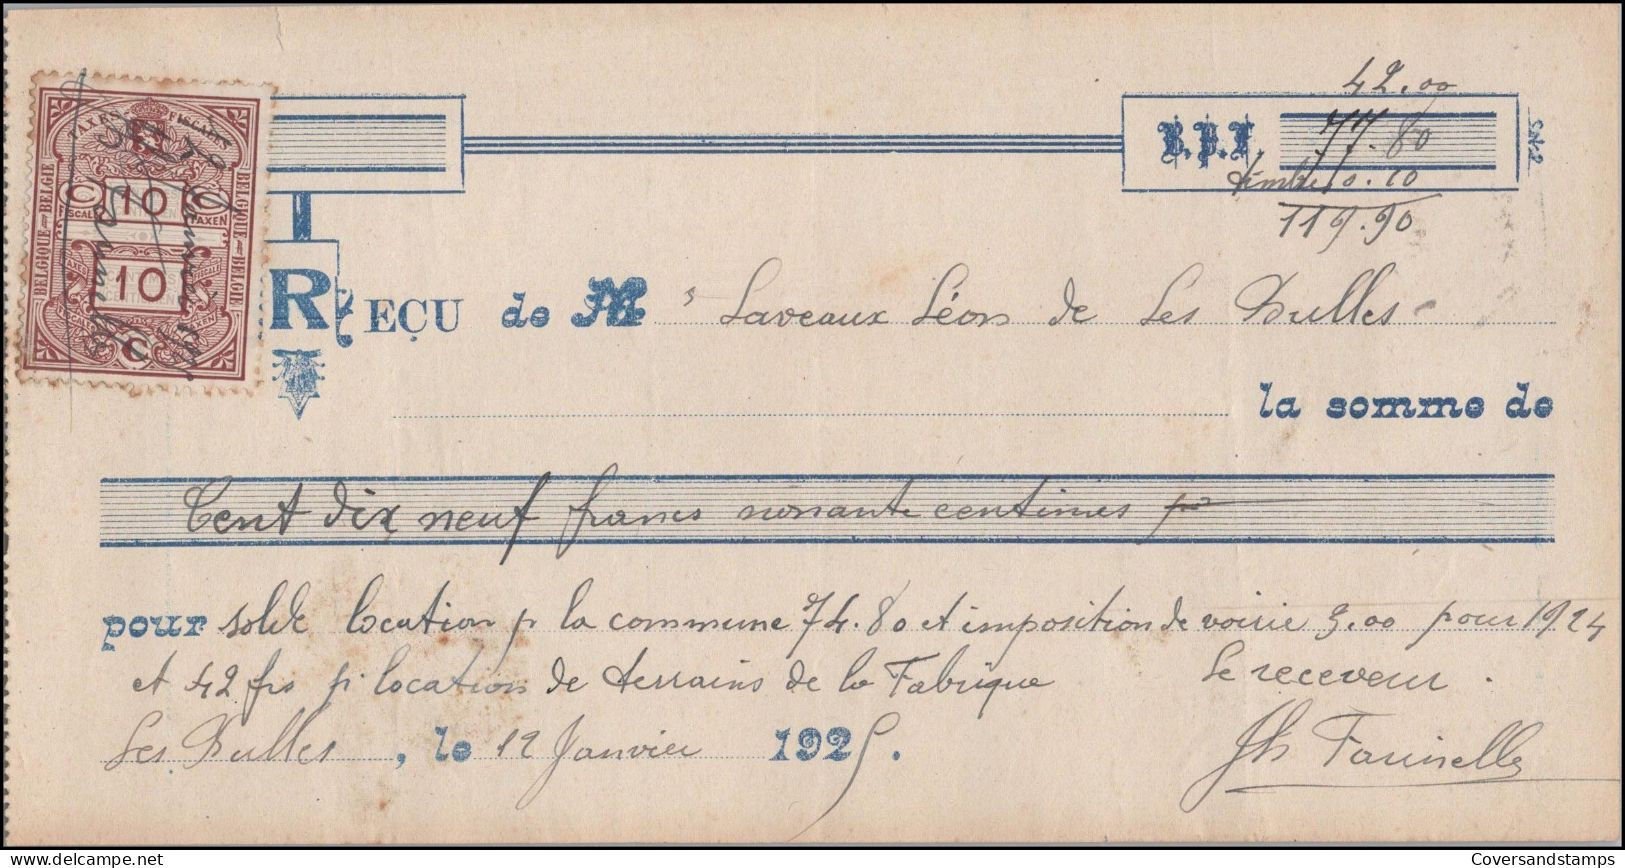 42.00
B.P.F. 77.80
timbre 0.10
119.90
TAXES FISCALES
BELGIQUE - BELGIE
BELGIQUE - BELGIE
C 10 C
FISCALE TAXEN
10
C
REÇU de M r Laveaux Léon de Les Bulles
la somme de
Cent dix neuf francs nonante centimes
pour solde location p la commune 74.80 et imposition de voirie 3.00 pour 1924
et 42 frs p location de terrains de la Fabrique Le receveur.
Les Bulles, le 12 Janvier 1925. Jh Farinelle
Coversandstamps